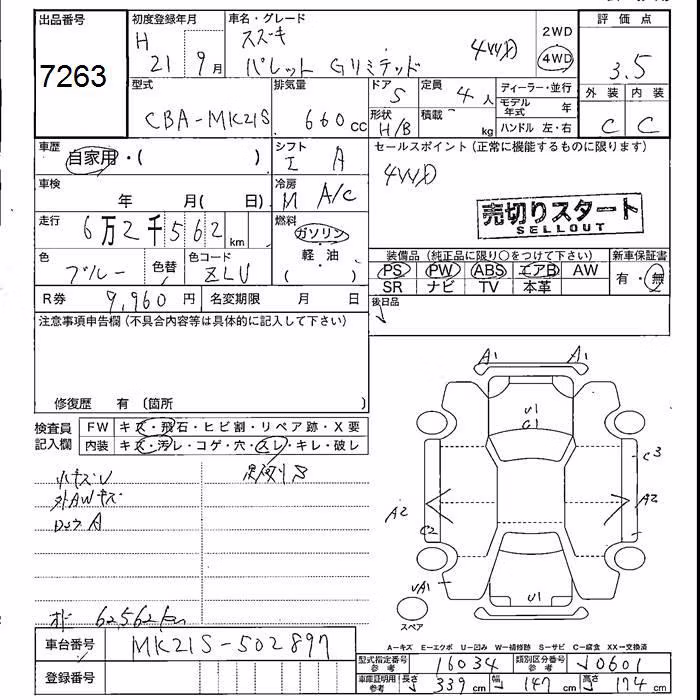 出品番号
7263
初度登録年月
H 21年 9月
車名・グレード
スズキ 4WD
パレット Gリミテッド
2WD
4WD
評価点
3.5
外装 内装
C C
型式
CBA-MK21S
排気量
660cc
ドア
5
定員
4人
形状
H/B
積載
kg
ディーラー・並行
モデル年式 年
ハンドル 左・右
車歴
自家用・( )
シフト
I A
セールスポイント (正常に機能するものに限ります)
4WD
車検
年 月( 日)
冷房
M A/C
走行
6万2千562km
燃料
ガソリン
軽・油
( )
売切りスタート
SELLOUT
色
ブルー
色替
色コード
ZLU
装備品 (純正品に限り〇をつけて下さい)
PS PW ABS エアB AW
SR ナビ TV 本革
新車保証書
有・無
R券 9,960円
名変期限 月 日
後日品
注意事項申告欄 (不具合内容等は具体的に記入して下さい)
修復歴 有 [箇所 ]
検査員記入欄
FW キズ・飛石・ヒビ割・リペア跡・X要
内装 キズ・汚レ・コゲ・穴・スレ・キレ・破レ
小キズU
外AWキズ
A
オド 62562km
A1 A1
U1
G1
C3
A2 A2
C2
A1
U1
スペア
A-キズ E-エクボ U-凹み W-補修跡 S-サビ C-腐食 XX-交換済
車台番号 MK21S-502897
登録番号
型式指定番号 参考 16034
類別区分番号 参考 0601
車庫証明用 参考 長さ 339cm 幅 147cm 高さ 174cm